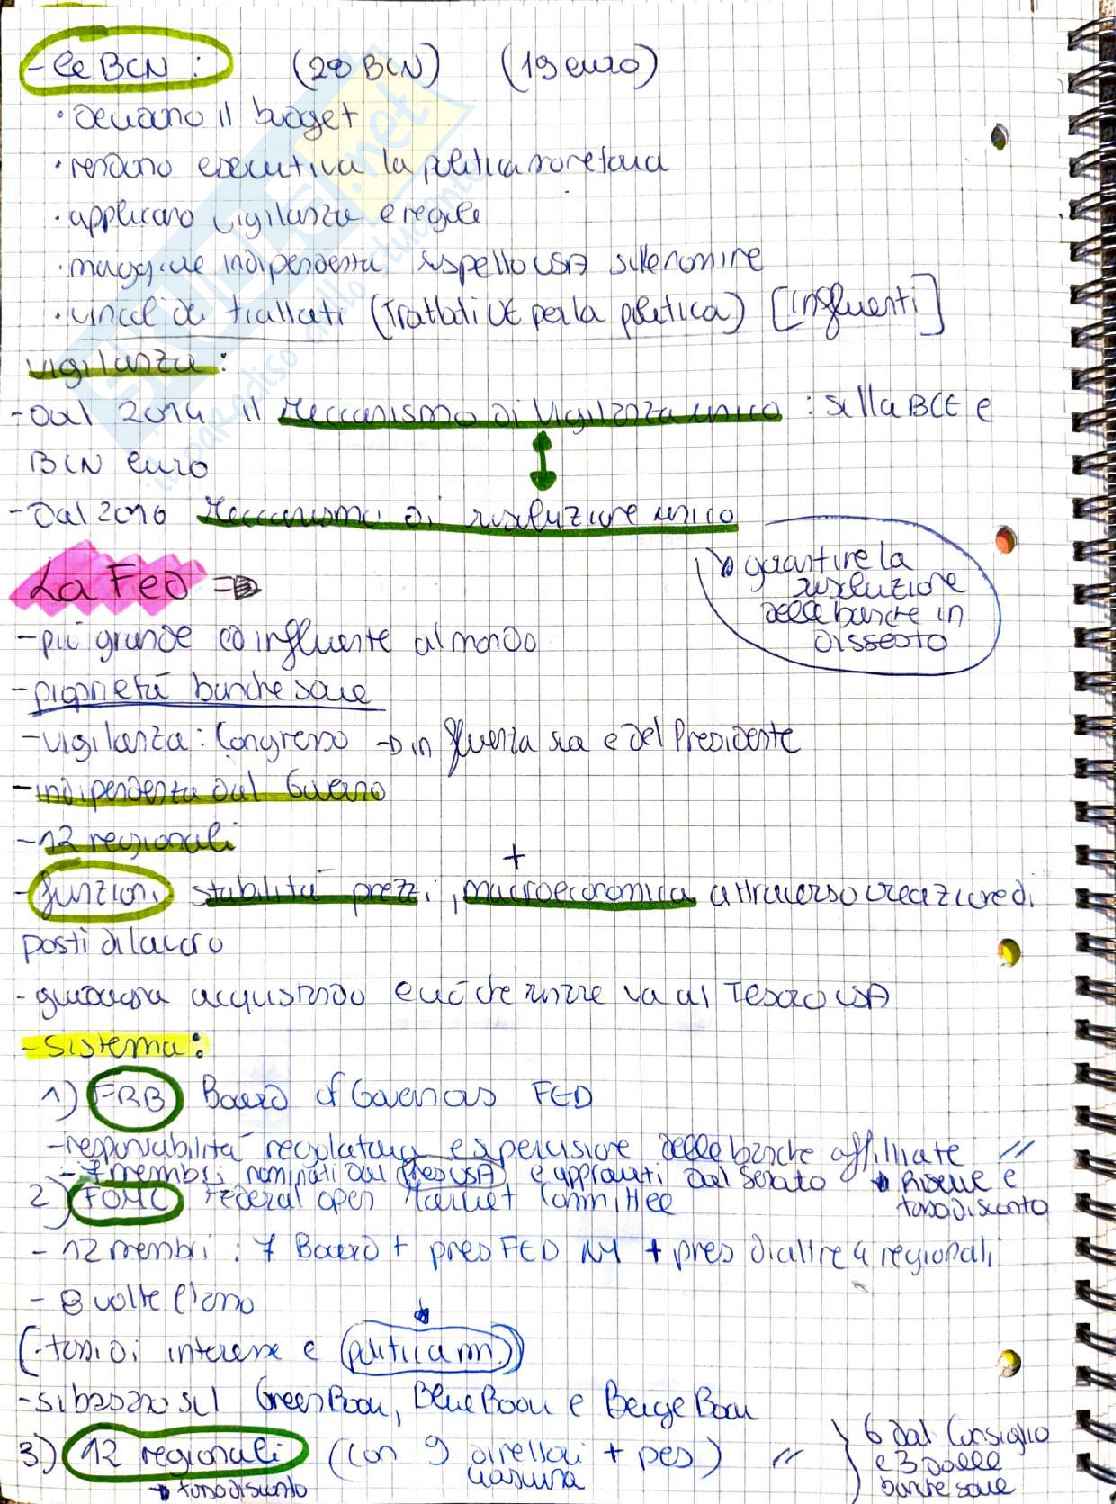 - Le BCN : (28 BCN) (19 euro)
· decidono il budget
· rendono esecutiva la politica monetaria
· applicano vigilanza e regole
· maggiore indipendenza rispetto USA sulle nomine
· vincoli dei trattati (Trattati UE per la politica) [influenti]
vigilanza :
- Dal 2014 il Meccanismo di Vigilanza unico : sulla BCE e
BCN euro
- Dal 2016 Meccanismo di risoluzione unico
garantire la
risoluzione
delle banche in
dissesto
La FED =>
- più grande ed influente al mondo
- proprietà banche socie
- vigilanza : Congresso → influenza sia e del Presidente
- indipendenza dal Governo
- 12 regionali
+
- funzioni stabilità prezzi, macroeconomica attraverso creazione di
posti di lavoro
- guadagna acquistando e ciò che rimane va al Tesoro USA
- Sistema :
1) FRB Board of Governors FED
- responsabilità regolatoria e supervisione delle banche affiliate //
- 7 membri nominati dal (Pres USA) e approvati dal Senato → Riserve e
tasso di sconto
2) FOMC Federal Open Market Committee
- 12 membri : 7 Board + pres FED NY + pres di altre 4 regionali
- 8 volte l'anno
(· tassi di interesse e politica m.)
- si basano sul Green Book, Blue Book e Beige Book
3) 12 regionali (con 9 direttori + pres) //
→ tasso di sconto
nomina
6 dal Consiglio
e 3 dalle
banche socie